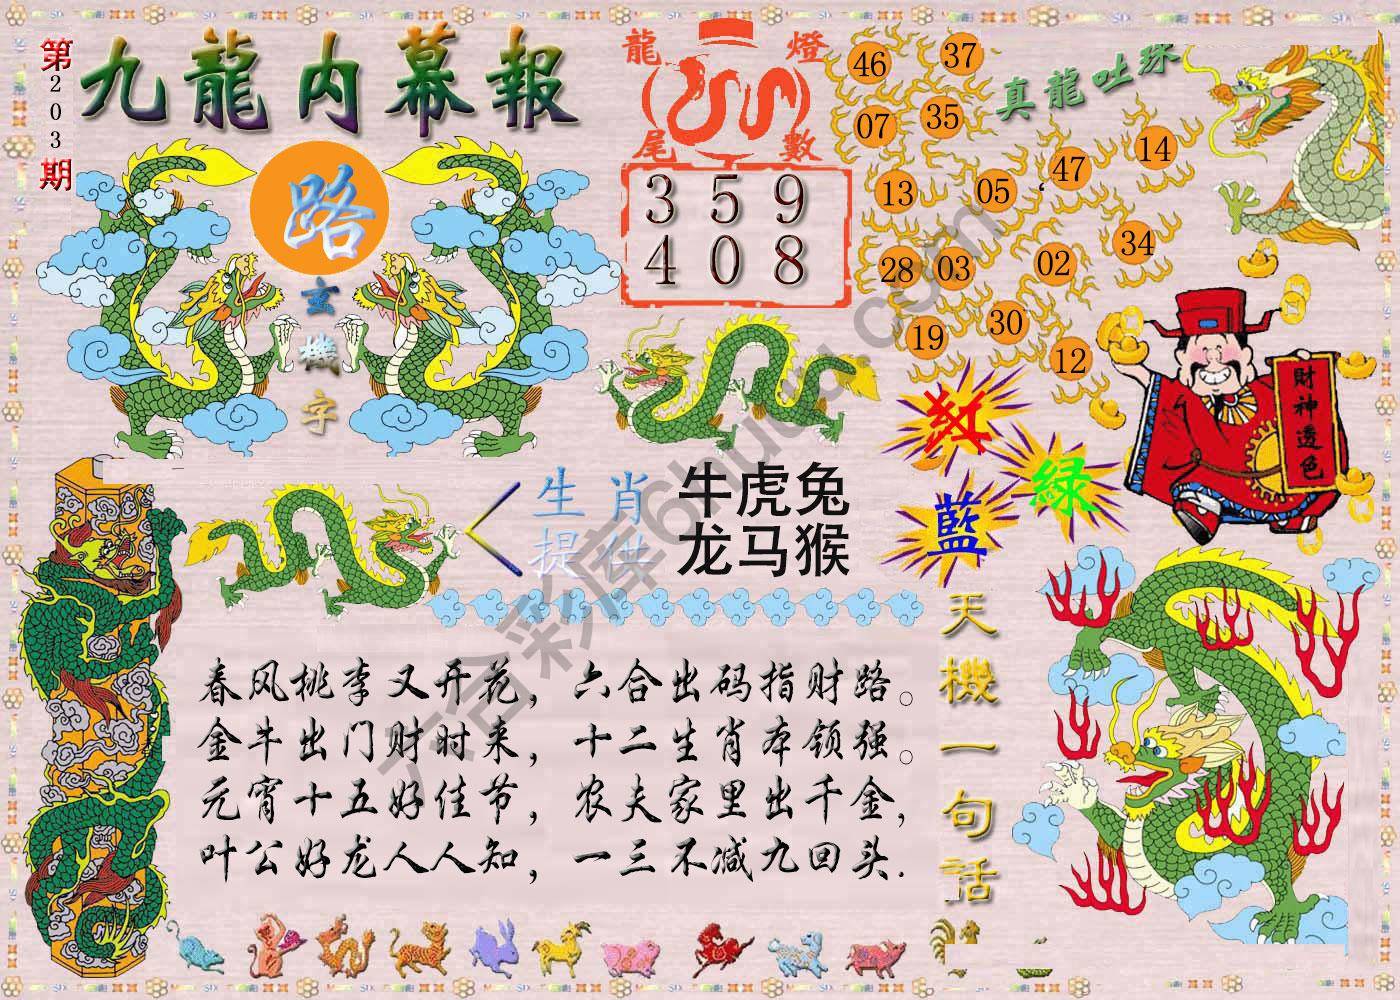 第203期
九龍内幕報
路
玄機字
龍燈
尾數
3 5 9
4 0 8
真龍吐珠
46 37
07 35
13 05 47 14
28 03 02 34
19 30 12
財神透色
紅
綠
藍
生肖
提供
牛虎兔
龙马猴
天機一句話
春风桃李又开花，六合出码指财路。
金牛出门财时来，十二生肖本领强。
元宵十五好佳节，农夫家里出千金，
叶公好龙人人知，一三不减九回头.
六合彩库6hucu.com